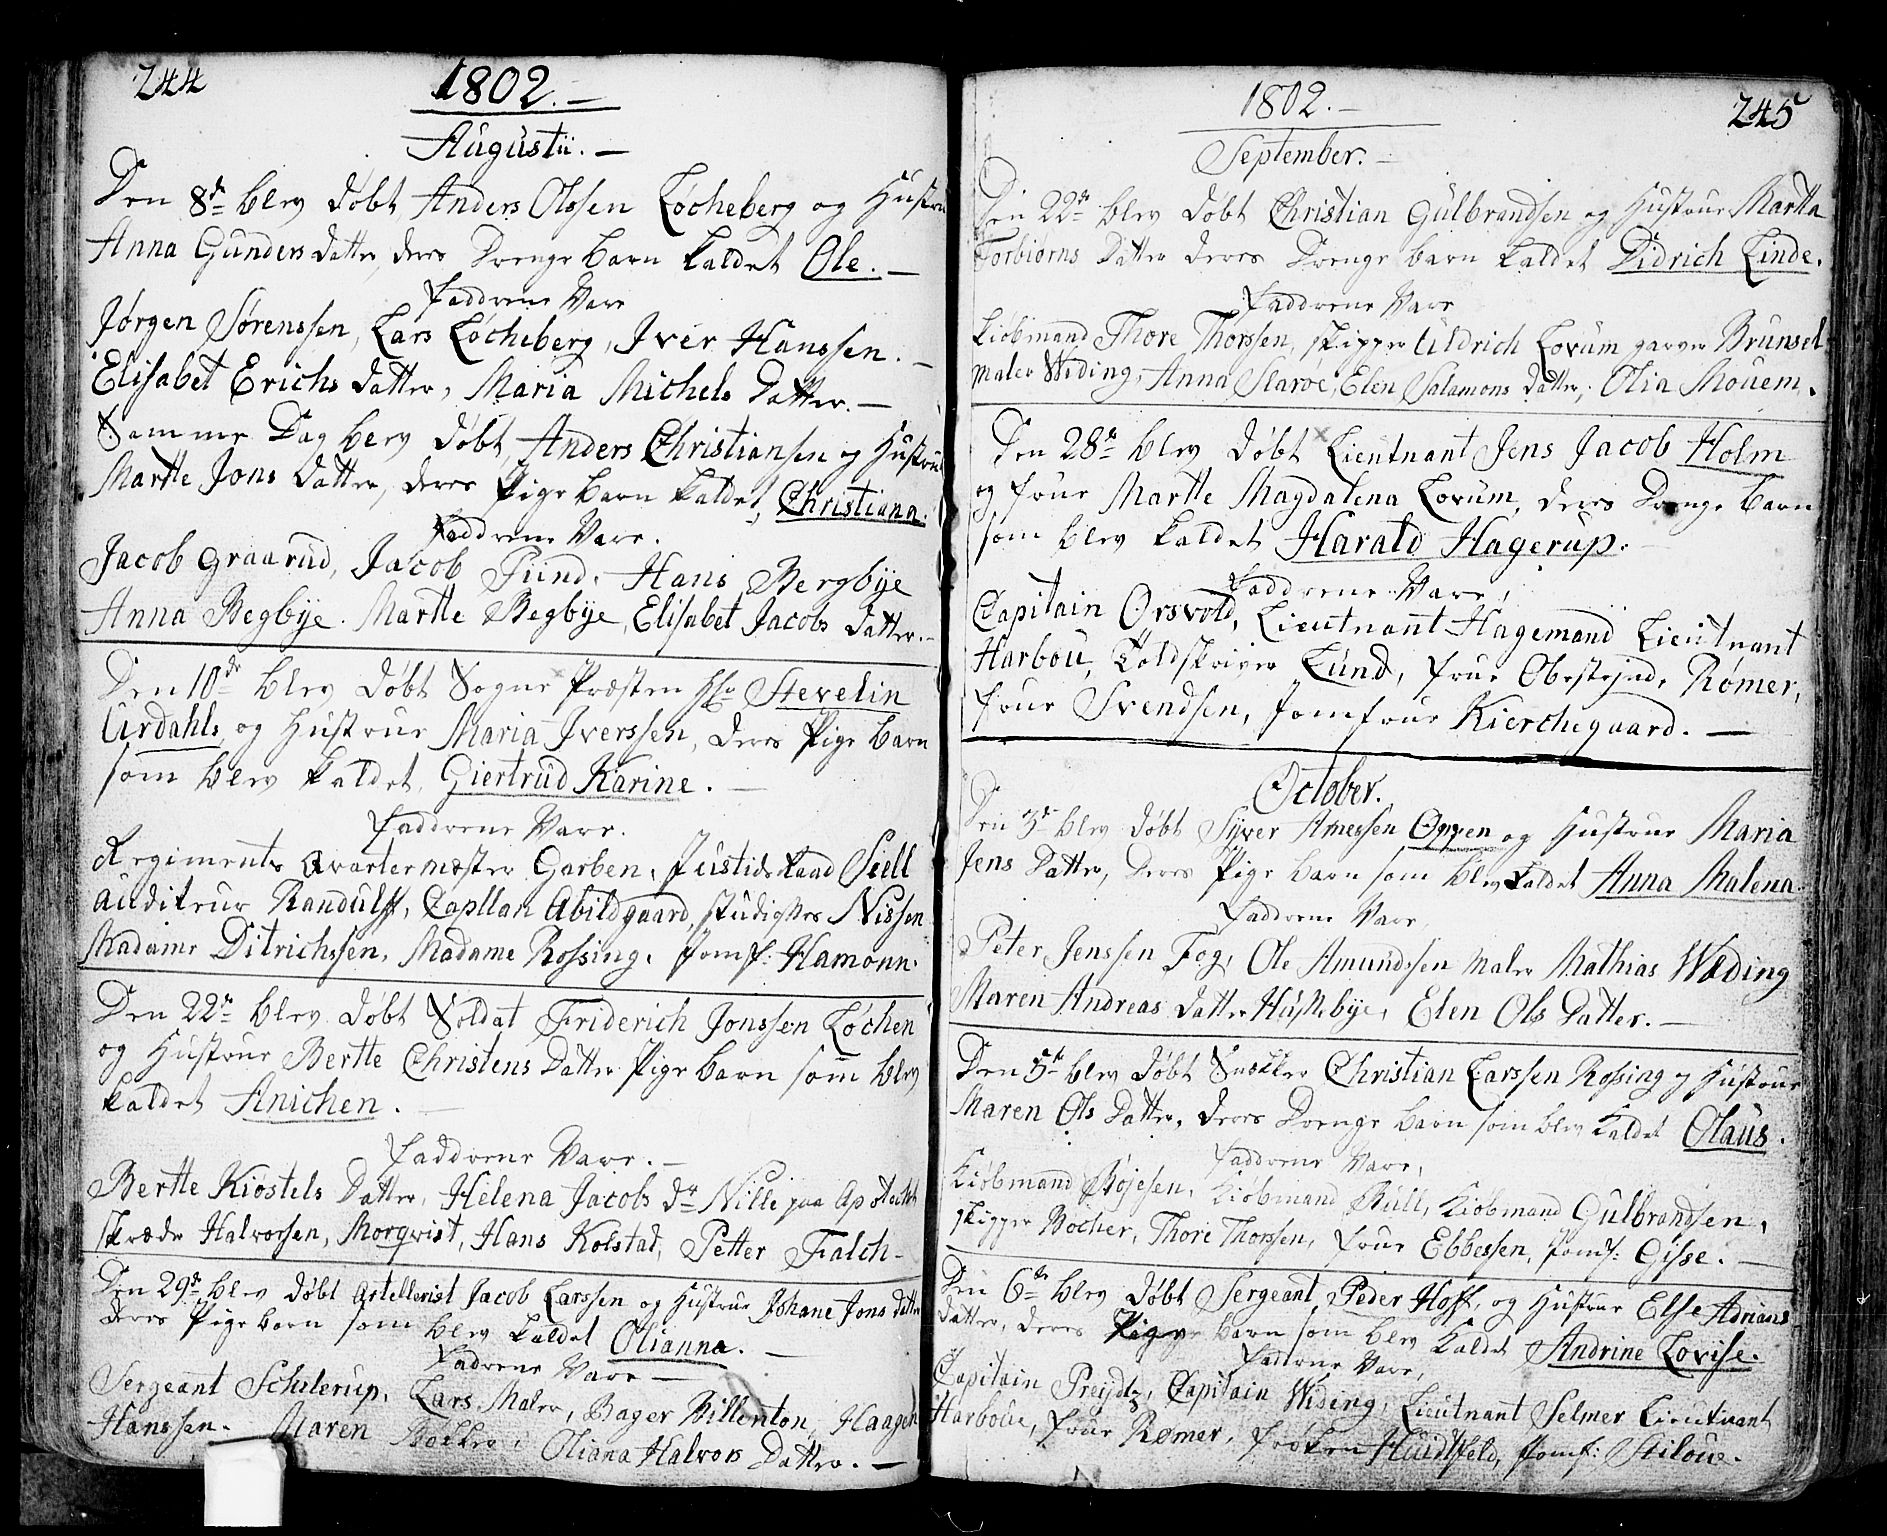 244
1802.
Augustii.
Den 8de blev døbt Anders Olssen Løcheberg og Hustrue
Anna Gunders datter, deres Drenge barn kaldet Ole.
Faddrene Vare
Jørgen Sørenssen, Lars Løcheberg, Iver Hanssen.
Elisabet Erichs datter, Maria Michels Datter.
Samme Dag blev døbt, Anders Christiansen og Hustrue
Martte Jons Datter, deres Pige barn kaldet, Christiana.
Faddrene Vare.
Jacob Graarud, Jacob Pund, Hans Bergbÿe
Anna Begbÿe. Martte Begbÿe, Elisabet Jacobs datter.
Den 10de blev døbt Sogne Præsten Hr Stevelin
Urdahls, og Hustrue Maria Iverssen, deres Pige barn
som blev kaldet, Giertrud Karine.
Faddrene Vare.
Regiments Qvartermæster Garben, Justids Raad Siell
auditeur Randulff, Capllan Abildgaard, Studiosus Nissen
Madame Ditrichssen, Madame Rossing, Jomf: Hamonn.
Den 22de blev døbt Soldat Friderich Jonssen Løchen
og Hustrue Bertte Christens Datter Pige barn som blev
kaldet Anichen.
Faddrene Vare.
Bertte Kiostels Datter, Helena Jacobs dr Nille paa Apotecket
Skræder Halvorsen, Morqvist, Hans Kolstad, Petter Falch
Den 29de blev døbt Artellerist Jacob Larssen og Hustrue Johane Jons datter
deres Pige barn som blev kaldet Olianna.
Fadrene Vare
Sergeant Schilerup, Lars Maler, Bager Billenton, Haagen
Hanssen. Maren Bøkker, Oliana Halvors Datter.
245
1802.
September.
Den 22de blev døbt Christian Gulbrandsen og Hustrue Martta
Torbiørns Datter deres Drenge barn kaldet Didrich Linde.
Faddrene Vare
Kiøbmand Thore Thorssen, skipper Uldrich Lorum garver Brunsel
maler Widing, Anna Slaroe, Elen Salamons datter, Olia Mouem.
Den 28de blev døbt Lieutnant Jens Jacob Holm
og frue Martte Magdalena Lorum, deres Drenge barn
som blev kaldet Harald Hagerup.
Faddrene Vare,
Capitain Orsvold, Lieutnannt Hagemand Lieutnant
Harbou, Toldskriver Lund, frue Oberstejnde Rømer,
frue Svendsen, Jomfrue Kierchegaard.
October.
Den 3de blev døbt Sÿver Arnessen Oppen og Hustrue Maria
Jens Datter, deres Pige barn som blev kaldet Anna Malena.
Faddrene Vare,
Peter Jenssen Fog, Ole Amundssen Maler Mathias Wæding
Maren Andreas datter Huslebÿe, Elen Ols Datter.
Den 5te blev døbt Snækker Christian Larssen Rossing og Hustrue
Maren Ols Datter, deres Drenge barn som blev kaldet Olaus.
Faddrene Vare,
Kiøbmand Bøjesen, Kiøbmand Bull, Kiøbmand Gulbrandsen,
skipper Bocher, Thore Thorssen, frue Ebbessen, Jomf: Gisse.
Den 6de blev døbt Sergeant Peder Hoff, og Hustrue Else Adrians
datter, deres Pige barn som blev kaldet Andrine Lovise.
Faddrene Vare,
Capitain Preÿdtz, Capitain Widing, Lieutnant Selmer Lieutnant
Harboue, frue Rømer, frøken Huidtfeld, Jomf: Stiloue.